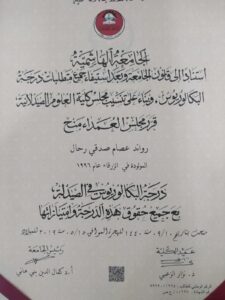 الجامعة الهاشمية
استنادا إلى قانون الجامعة وبعد استيفاء جميع متطلبات درجة
البكالوريوس. وبناء على تنسيب مجلس كلية العلوم الصيدلانية
قرر مجلس العمداء منح
رواند عصام صدقي رحال
المولودة في الزرقاء عام ١٩٩٦
درجة البكالوريوس في الصيدلة
مع جميع حقوق هذه الدرجة وامتيازاتها
عميد الكلية
رئيس الجامعة
أ.د كمال الدين بني هاني